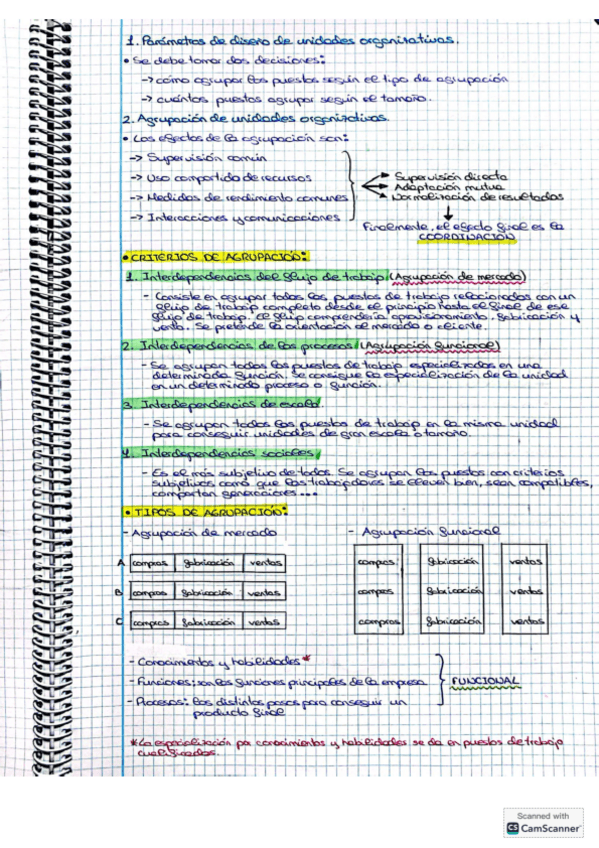 1. Parámetros de diseño de unidades organizativas.
• Se debe tomar dos decisiones:
-> cómo agrupar los puestos según el tipo de agrupación
-> cuántos puestos agrupar según el tamaño.
2. Agrupación de unidades organizativas.
• Los efectos de la agrupación son:
-> Supervisión común
-> Uso compartido de recursos
-> Medidas de rendimiento comunes
-> Interacciones y comunicaciones
Supervisión directa
Adaptación mutua
Normalización de resultados
Finalmente, el efecto final es la
COORDINACIÓN
• CRITERIOS DE AGRUPACIÓN:
1. Interdependencias del flujo de trabajo (Agrupación de mercado)
- Consiste en agrupar todos los puestos de trabajo relacionados con un
flujo de trabajo completo desde el principio hasta el final de ese
flujo de trabajo. El flujo comprendería aprovisionamiento, fabricación y
venta. Se pretende la orientación al mercado o cliente.
2. Interdependencias de los procesos (Agrupación funcional)
- Se agrupan todos los puestos de trabajo especializados en una
determinada función. Se consigue la especialización de la unidad
en un determinado proceso o función.
3. Interdependencias de escala
- Se agrupan todos los puestos de trabajo en la misma unidad
para conseguir unidades de gran escala o tamaño.
4. Interdependencias sociales
- Es el más subjetivo de todos. Se agrupan los puestos con criterios
subjetivos como que los trabajadores se lleven bien, sean compatibles,
compartan generaciones...
• TIPOS DE AGRUPACIÓN:
- Agrupación de mercado
A compras fabricación ventas
B compras fabricación ventas
C compras fabricación ventas
- Agrupación funcional
compras fabricación ventas
compras fabricación ventas
compras fabricación ventas
- Conocimientos y habilidades *
- Funciones: son las funciones principales de la empresa
- Procesos: los distintos pasos para conseguir un
producto final
FUNCIONAL
* La especialización por conocimientos y habilidades se da en puestos de trabajo
cualificados.
Scanned with
CS CamScanner